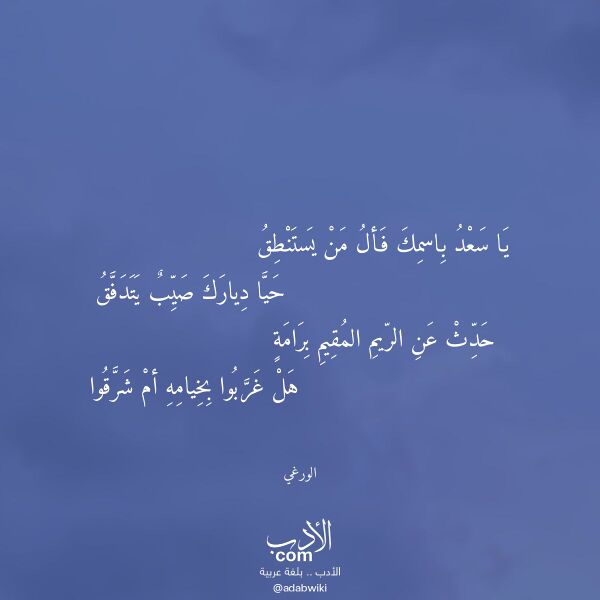 يَا سَعْدُ بِاسمِكَ فَألُ مَنْ يَستَنْطِقُ
حَيَّا دِيارَكَ صَيِّبٌ يَتَدَفَّقُ
حَدِّثْ عَنِ الرّيمِ المُقِيمِ بِرَامَةٍ
هَلْ غَرَّبُوا بِخِيامِهِ أمْ شَرَّقُوا
الورغي
الأدب
com
الأدب .. بلغة عربية
@adabwiki